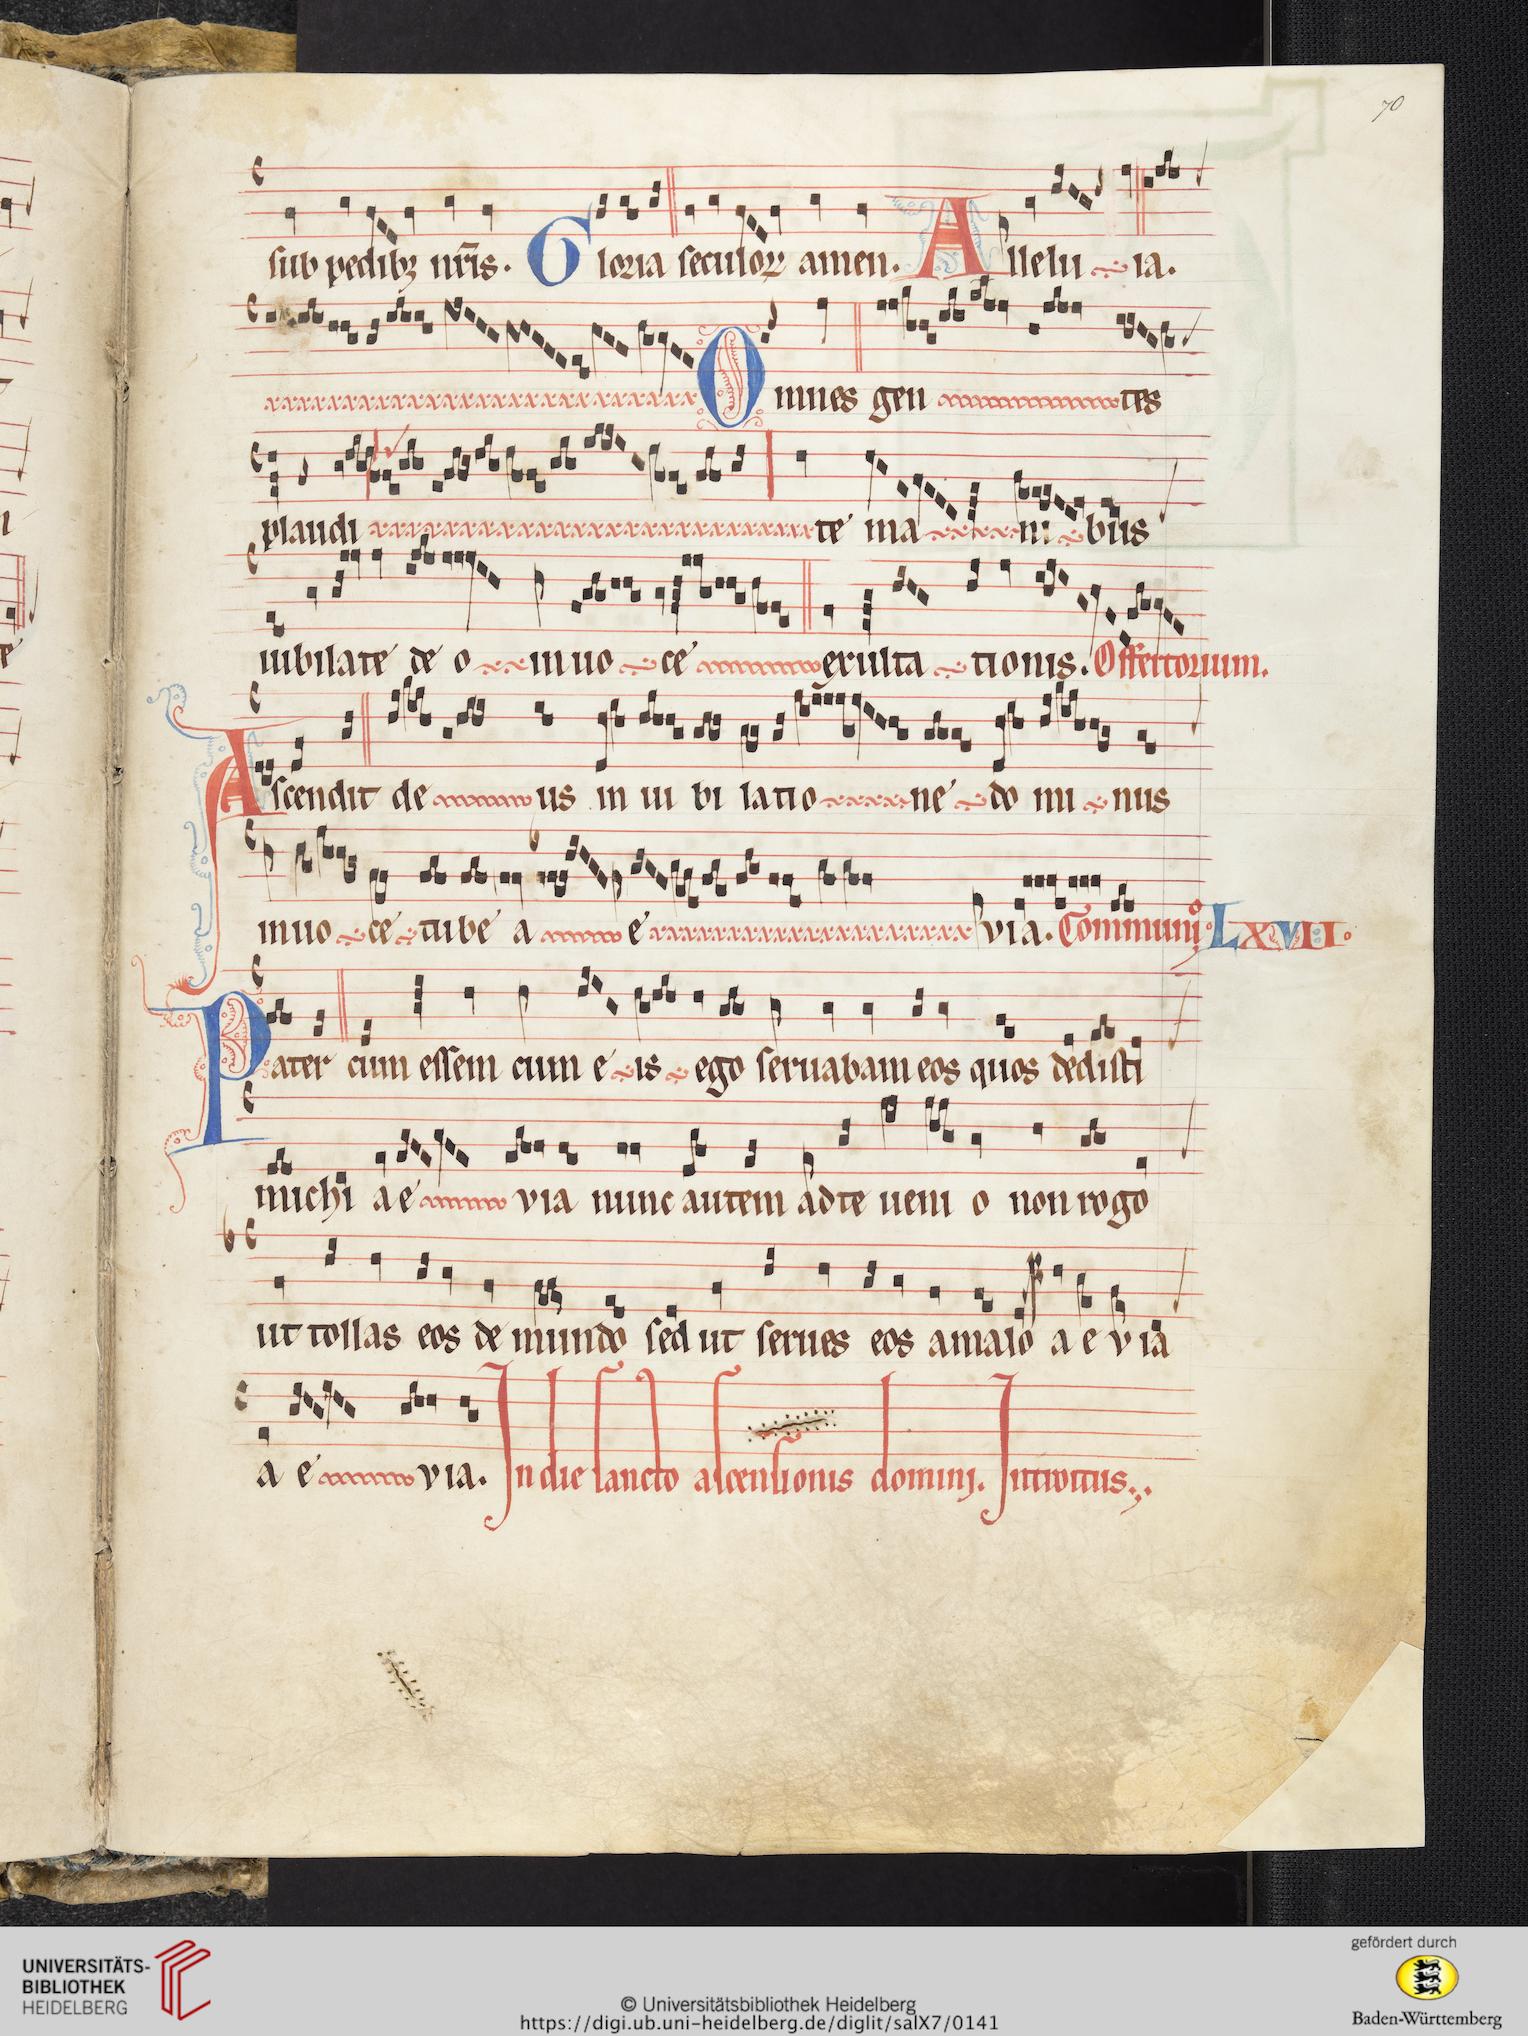 70
sub pedibꝫ nr̄is. Gloria seculoꝝ amen. Allelu ia.
Omnes gen tes
plaudi te ma ni bus
iubilate deo in uo ce exulta tionis. Offertorium.
Ascendit de us in iu bi latio ne do mi nus
in uo ce tube a e via. Co͞muni͞o LXVII.
Pater cum essem cum e is ego seruabam eos quos dedisti
michi a e via nunc autem ad te ueni o non rogo
ut tollas eos de mundo sed ut serues eos a malo a e via
a e via. In die sancto ascensionis domini. Introitus.
UNIVERSITÄTS-
BIBLIOTHEK
HEIDELBERG
© Universitätsbibliothek Heidelberg
https://digi.ub.uni-heidelberg.de/diglit/salX7/0141
gefördert durch
Baden-Württemberg